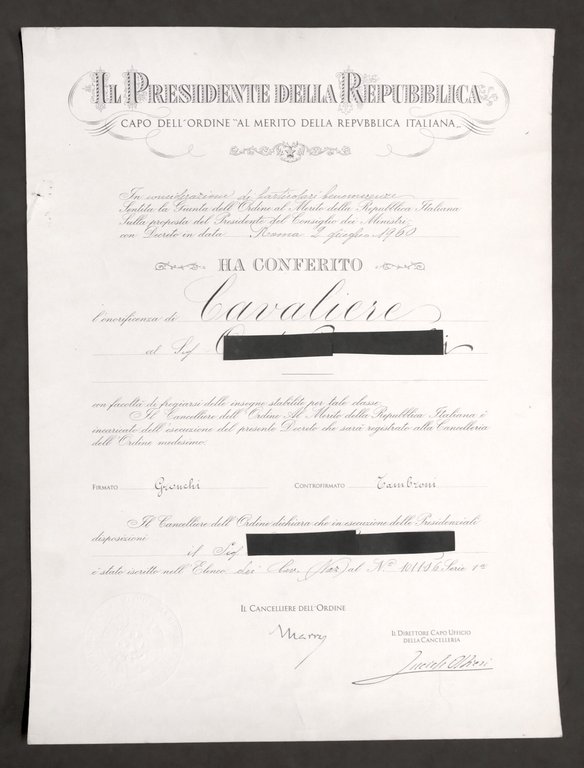 IL PRESIDENTE DELLA REPUBBLICA
CAPO DELL'ORDINE "AL MERITO DELLA REPVBBLICA ITALIANA„
In considerazione di particolari benemerenze
Sentita la Giunta dell'Ordine al Merito della Repubblica Italiana
Sulla proposta del Presidente del Consiglio dei Ministri
con Decreto in data Roma 2 giugno 1960
HA CONFERITO
l'onorificenza di Cavaliere
al Sig.
con facoltà di fregiarsi delle insegne stabilite per tale classe.
Il Cancelliere dell'Ordine Al Merito della Repubblica Italiana è
incaricato dell'esecuzione del presente Decreto che sarà registrato alla Cancelleria
dell'Ordine medesimo.
FIRMATO Gronchi CONTROFIRMATO Tambroni
Il Cancelliere dell'Ordine dichiara che in esecuzione delle Presidenziali
disposizioni
il Sig.
è stato iscritto nell'Elenco dei Cav. (Naz.) al N° Serie 1ª
IL CANCELLIERE DELL'ORDINE
IL DIRETTORE CAPO UFFICIO
DELLA CANCELLERIA